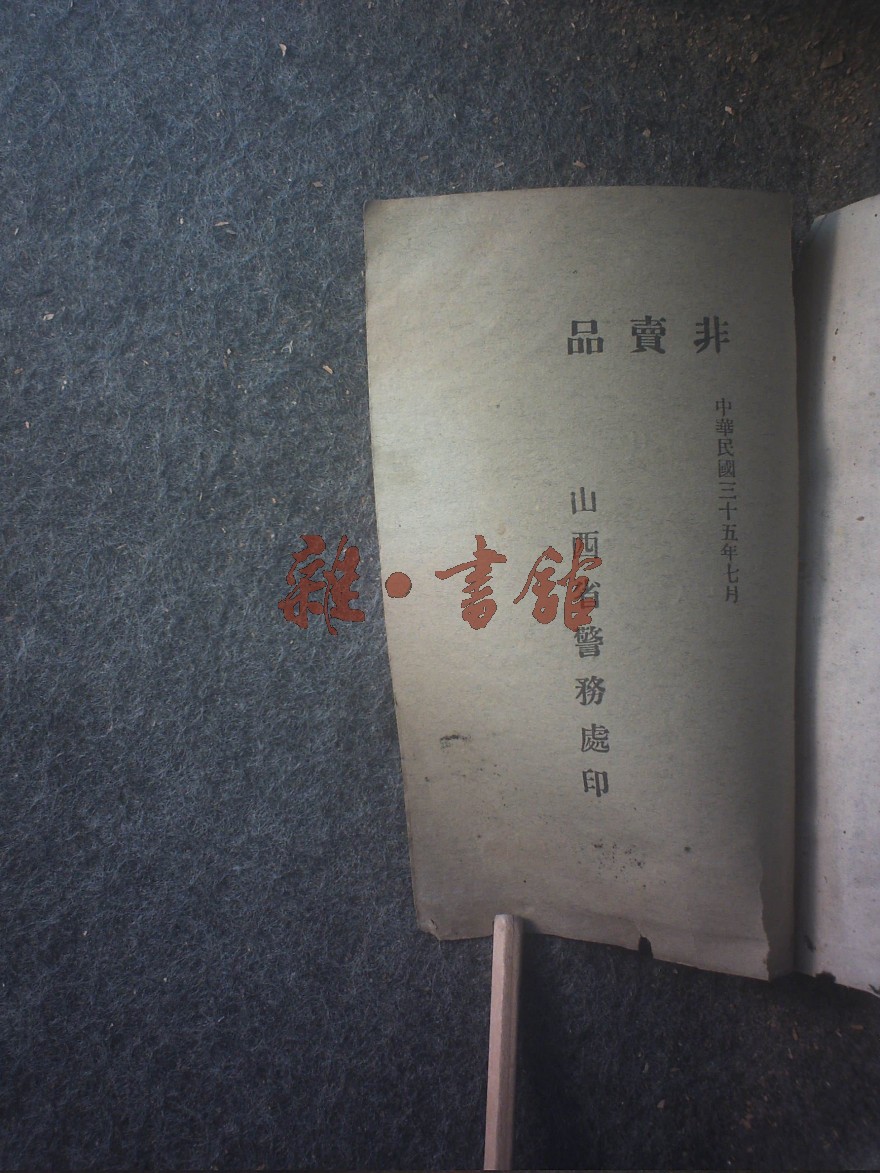 非賣品
中華民國三十五年七月
山西省警務處印
雜·書館